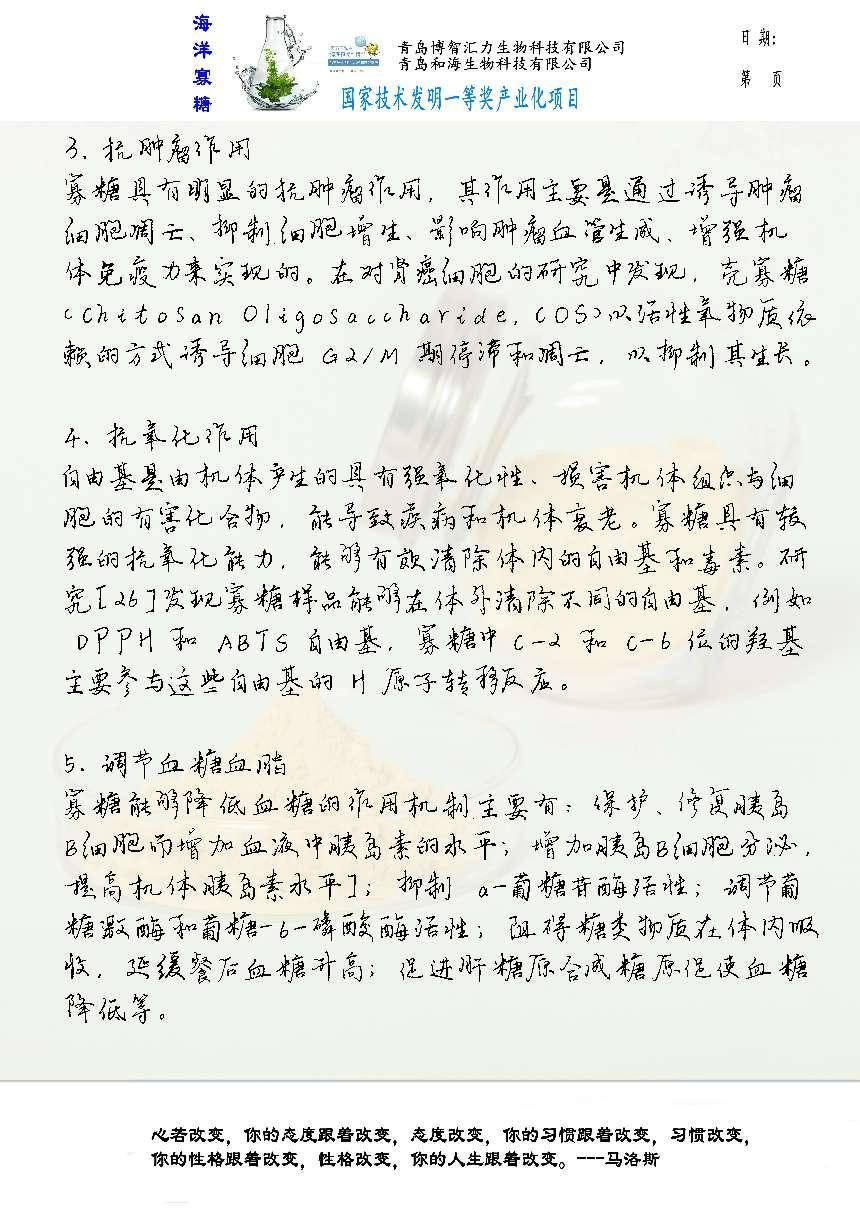 海洋寡糖
青岛博智汇力生物科技有限公司
青岛和海生物科技有限公司
国家技术发明一等奖产业化项目
日期:
第 页
3. 抗肿瘤作用
寡糖具有明显的抗肿瘤作用，其作用主要是通过诱导肿瘤
细胞凋亡、抑制细胞增生、影响肿瘤血管生成、增强机
体免疫力来实现的。在对肾癌细胞的研究中发现，壳寡糖
(Chitosan Oligosaccharide, COS)以活性氧物质依
赖的方式诱导细胞 G2/M 期停滞和凋亡，以抑制其生长。
4. 抗氧化作用
自由基是由机体产生的具有强氧化性、损害机体组织与细
胞的有害化合物，能导致疾病和机体衰老。寡糖具有较
强的抗氧化能力，能够有效清除体内的自由基和毒素。研
究[26]发现寡糖样品能够在体外清除不同的自由基，例如
DPPH 和 ABTS 自由基，寡糖中 C-2 和 C-6 位的羟基
主要参与这些自由基的 H 原子转移反应。
5. 调节血糖血脂
寡糖能够降低血糖的作用机制主要有：保护、修复胰岛
B细胞而增加血液中胰岛素的水平；增加胰岛B细胞分泌，
提高机体胰岛素水平]；抑制 α-葡糖苷酶活性；调节葡
糖激酶和葡糖-6-磷酸酶活性；阻碍糖类物质在体内吸
收，延缓餐后血糖升高；促进肝糖原合成糖原促使血糖
降低等。
心若改变，你的态度跟着改变，态度改变，你的习惯跟着改变，习惯改变，
你的性格跟着改变，性格改变，你的人生跟着改变。---马洛斯